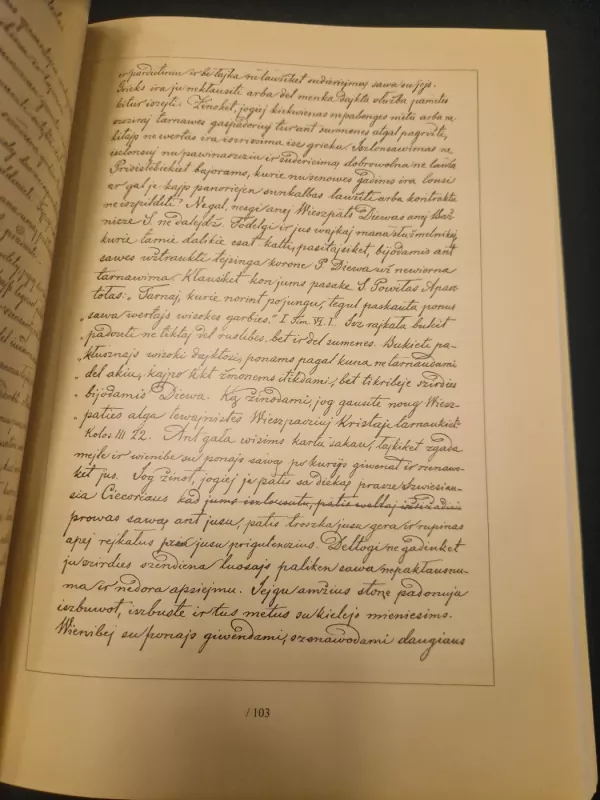 ir parduterim ir be tajka ne lauźiket suderiejmaj sawa su jojs.
Grieks ira ju neklausiti arba del menka dajkta słuźba pamites
kitur iszejti. Źinoket, jogiej kiekwienas ne pabenges metu arba ne
tarnawes gaspadoruj tur ant sumnenes algal pagrizti,
kitajp ne wertas ira iszriszima isz grieku. Iszlensawimas ne
iszlensuj nu pawinasczin ir sudericimaj dobrowolna ne lauźa
Prisistebiekiet bajorams, kurie nu senowes gadims ira lousi
ar gal je kajp panoriejen sunkalbas lauźiti arba kontrakta
ne iszpilditi? Negal, nesgi anej Wieszpats Diewas anej Baź-
nicze S. ne dalejdź. Todelgi ir jus wajkaj mana słuźmelnikaj
kurie tarnie dalikie esat kalti, pasitajsiket, bijodamis ant
sawes uźtraukte tejsinga korone P. Diewa uź newiorna
tarnawima. Klausiket kon jums pasake S. Powiłas Apasz-
tołas: „Tarnaj, kurie norint po jungu, tegul paskaita ponus
„sawa wertajs wisokes garbies." I Tim. VI. 1. Isz rajkala bukit
„padouti ne tiktaj del rustibes, bet ir del sumenes. Bukieti pa-
„kłusznajs wisoki dajktosi, ponams pagal kuna ne tarnaudami
„del akiu, kajpo tikt źmonems itikdami, bet tikribeje szirdies
„bijodamis Diewa. Ką źinodami, jog gausite noug Wiesz-
„paties alga tewajnistes Wieszpacziuj Kristuj tarnaukiet"
Kolos. III 22. Ant gala wisims kartu sakau, tajkiket zgada
mejle ir wienibe su ponajs sawą po kurijs giwenat ir rienaus-
ket jus. Jog źinot, jogiej je patis sa diekas prasze Szwiesiau-
sia Ciecoriaus kad jums iszlousutu, patis weltaj
prowas sawą ant jusu, patis troszka jusu gera ir rupinas
apej rejkałus jusu prigulenczius. Deltogi ne gadinket
ju szirdies szendiena luosajs paliken sawa nepakłausnu-
ma ir nedora apsiejmu. Jejgu amźius stonę padonuja
iszbuwot, iszbuste ir tus metus su kielejs mieniesims.
Wienibej su ponajs giwendami, szenawodami daugiaus
/ 103